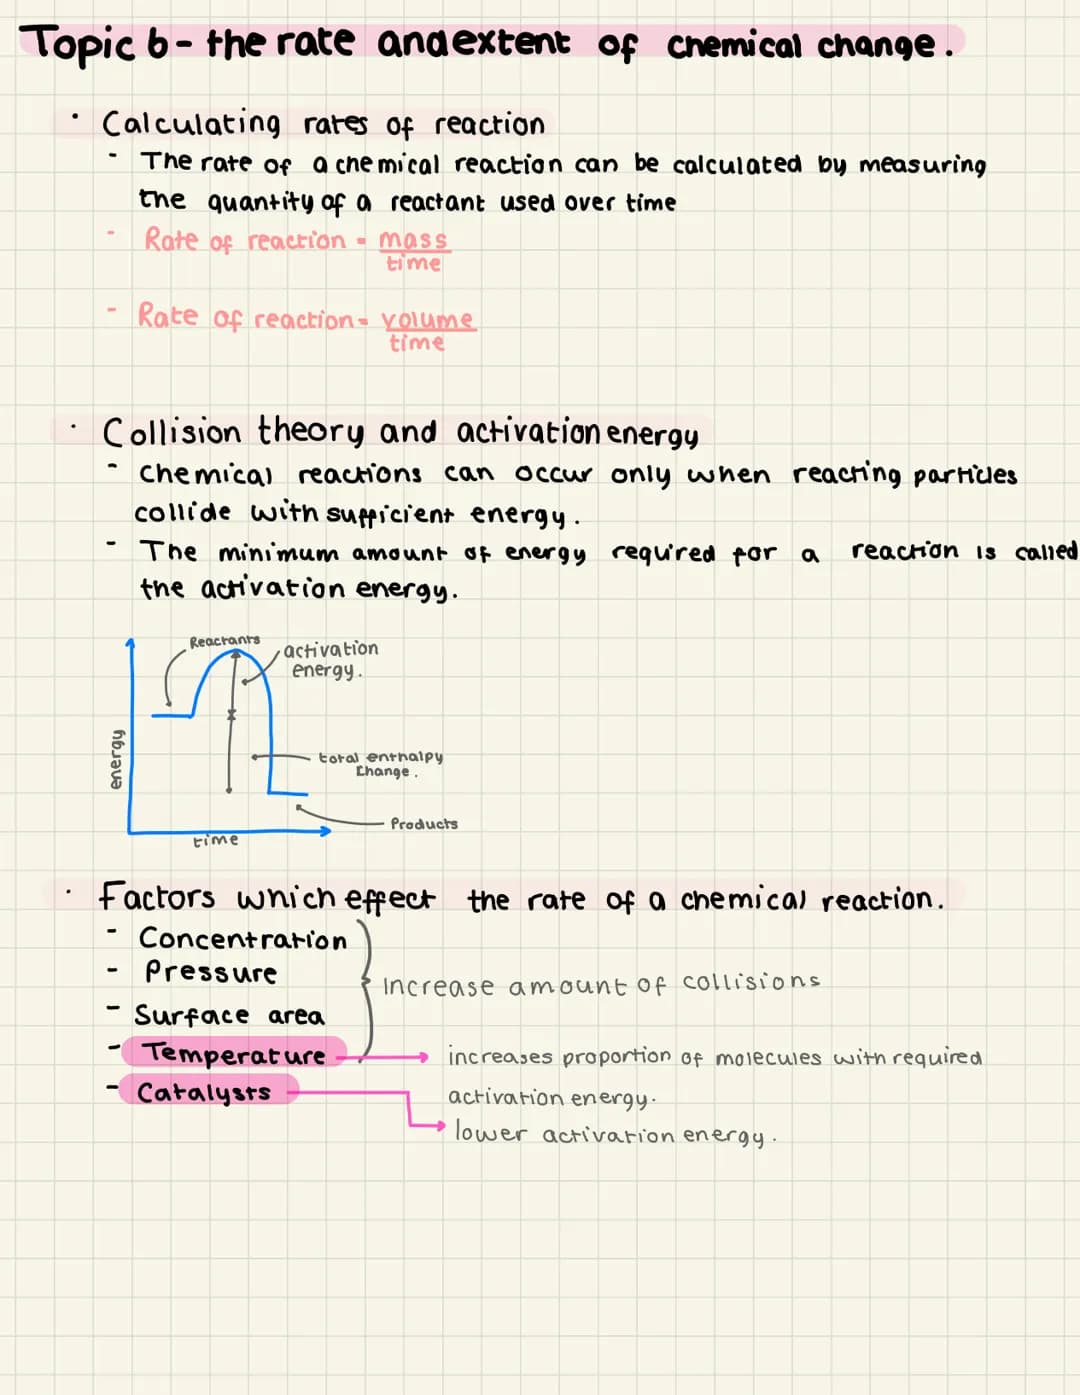 Topic 6 - the rate and extent of chemical change.
• Calculating rates of reaction
- The rate of a chemical reaction can be calculated by measuring
the quantity of a reactant used over time
- Rate of reaction = mass
time
- Rate of reaction = volume
time
• Collision theory and activation energy
- Chemical reactions can occur only when reacting particles
collide with sufficient energy.
- The minimum amount of energy required for a reaction is called
the activation energy.
Reactants
activation
energy.
energy
total enthalpy
Change.
Products
time
• Factors which effect the rate of a chemical reaction.
- Concentration
- Pressure
increase amount of collisions
- Surface area
- Temperature → increases proportion of molecules with required
activation energy.
- Catalysts
→ lower activation energy.